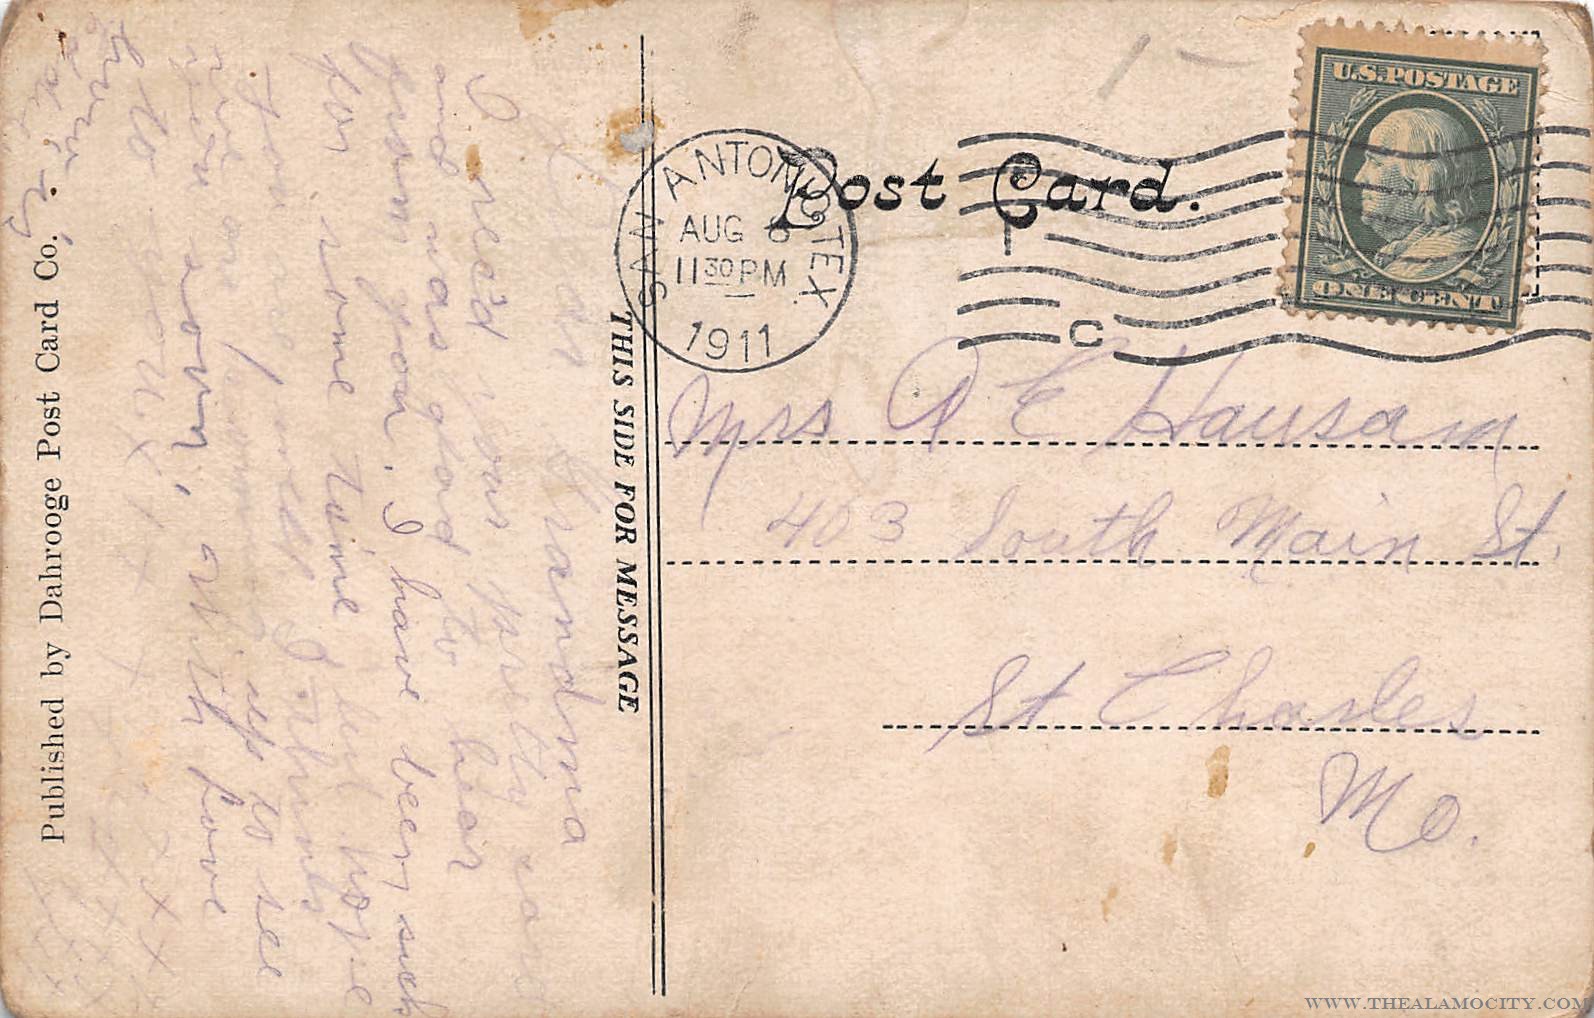 Dear Grandma
I rec'd your pretty card
and was glad to hear
from you. I have been sick
for some time but hope
you are well. I think
we are coming up to see
you soon, with love
to
x x x x
Published by Dahrooge Post Card Co.
THIS SIDE FOR MESSAGE
Post Card.
SAN ANTONIO, TEX.
AUG
11 30 PM
1911
C
U.S.POSTAGE
ONE CENT
Mrs E Hausam
403 South Main St.
St Charles
Mo.
WWW.THEALAMOCITY.COM